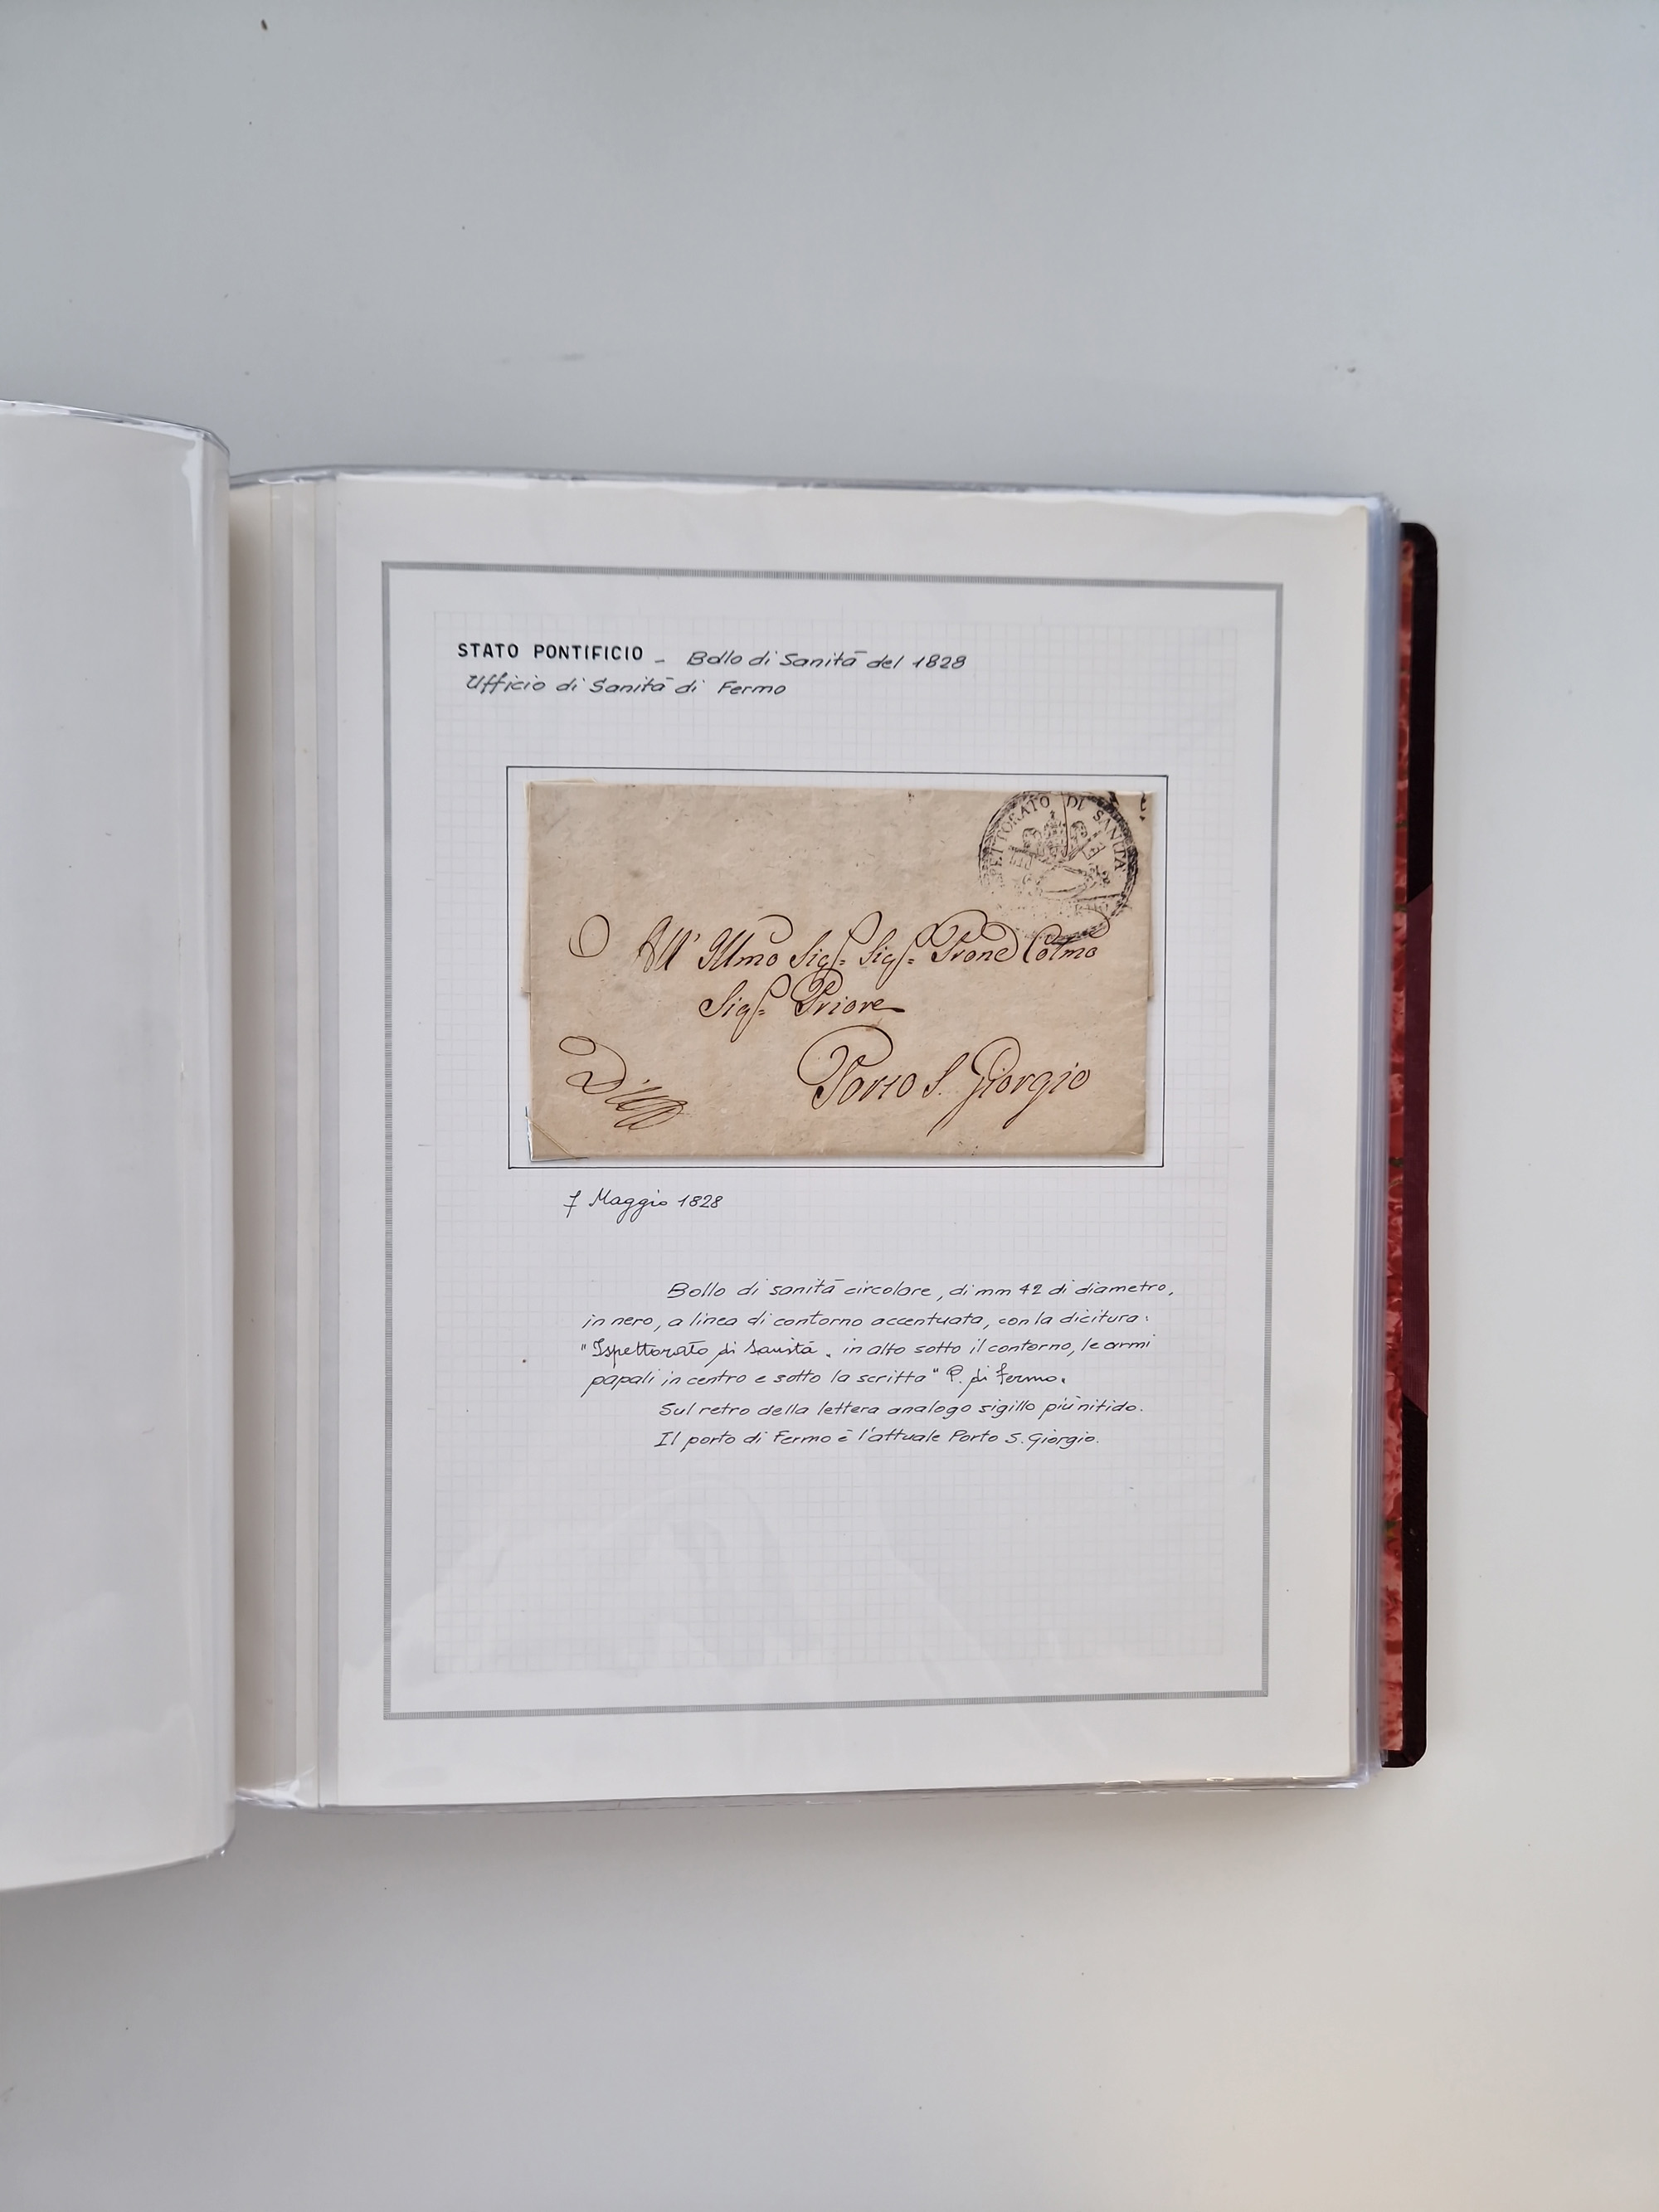 STATO PONTIFICIO - Bollo di Sanità del 1828
Ufficio di Sanità di Fermo
PETTORATO DI SANITA
All' Illmo Sigr. Sigr. Prone Colmo
Sigr. Priore
Porto S. Giorgio
7 Maggio 1828
Bollo di sanità circolare, di mm 42 di diametro,
in nero, a linea di contorno accentuata, con la dicitura:
"Ispettorato di Sanità" in alto sotto il contorno, le armi
papali in centro e sotto la scritta "P. di Fermo"
Sul retro della lettera analogo sigillo più nitido.
Il porto di Fermo è l'attuale Porto S. Giorgio.